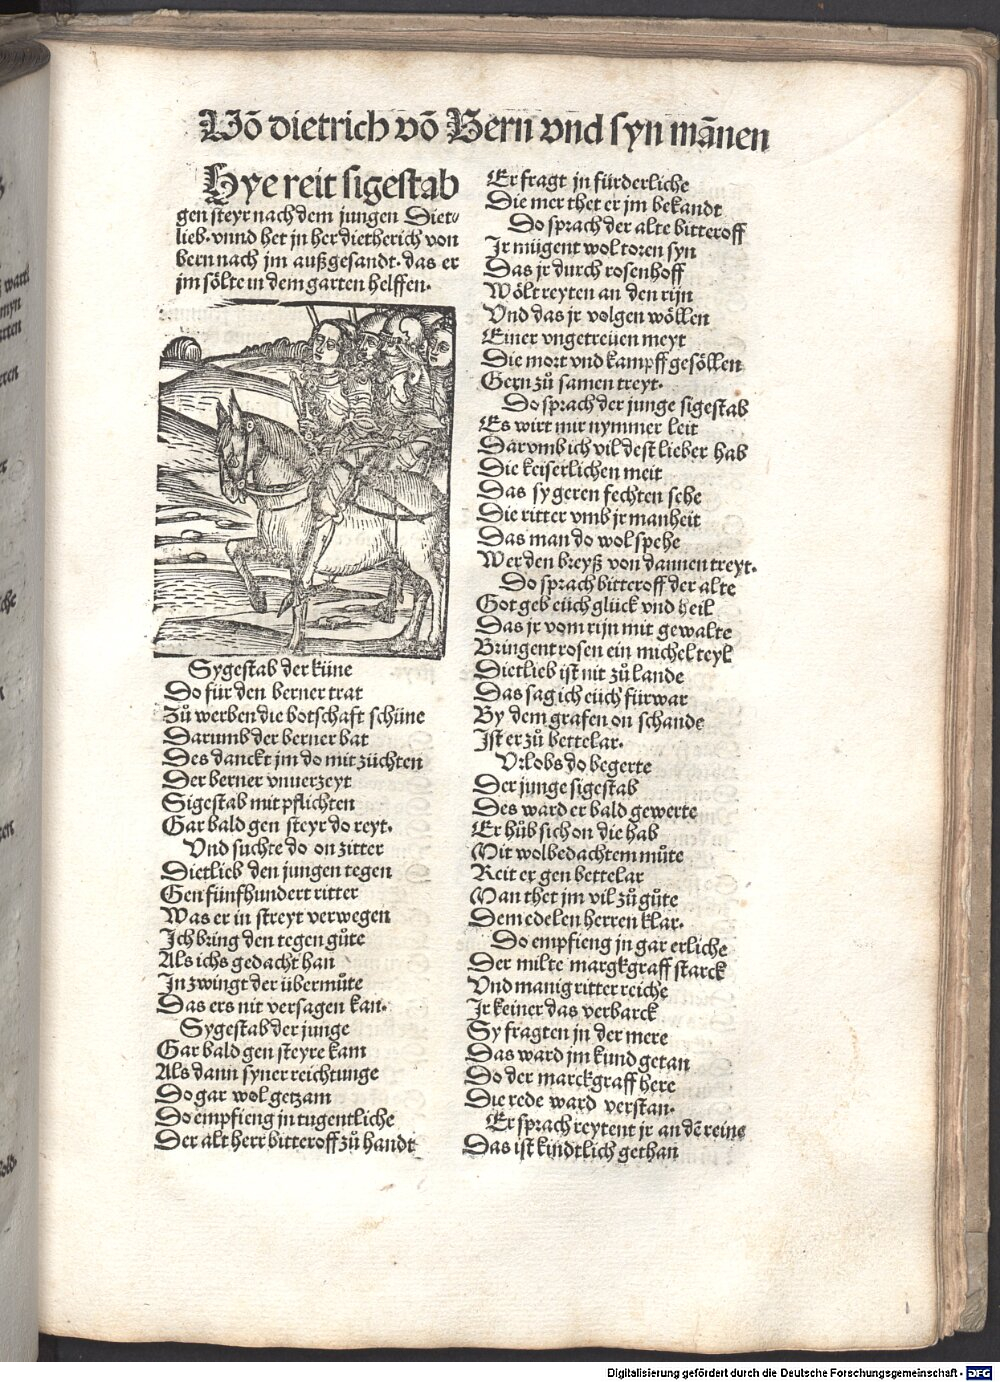 Võ dietrich võ Bern vnd syn mãnen
Hye reit sigestab
gen steyr nach dem jungen Diet⸗
lieb. vnnd het jn her dietherich von
bern nach jm außgesandt. das er
jm sölte in dem garten helffen.
Sygestab der küne
Do für den berner trat
Zů werben die botschaft schüne
Darumb der berner bat
Des danckt jm do mit züchten
Der berner vnuerzeyt
Sigestab mit pflichten
Gar bald gen steyr do reyt.
Vnd suchte do on zitter
Dietlieb den jungen tegen
Gen fünfhundert ritter
Was er in streyt verwegen
Ich bring den tegen gůte
Als ichs gedacht han
In zwingt der übermůte
Das ers nit versagen kan.
Sygestab der junge
Gar bald gen steyre kam
Als dann syner reichtunge
Do gar wol getzam
Do empfieng jn tugentliche
Der alt herr bitteroff zů handt
Er fragt jn fürderliche
Die mer thet er jm bekandt
Do sprach der alte bitteroff
Ir mügent wol toren syn
Das jr durch rosenhoff
Wölt reyten an den rijn
Vnd das jr volgen wöllen
Einer vngetreüen meyt
Die mort vnd kampff gesöllen
Gern zů samen treyt.
Do sprach der junge sigestab
Es wirt mir nymmer leit
Darvmb ich vil dest lieber hab
Die keiserlichen meit
Das sy geren fechten sehe
Die ritter vmb jr manheit
Das man do wol spehe
Wer den breyß von dannen treyt.
Do sprach bitteroff der alte
Got geb eüch glück vnd heil
Das jr vom rijn mit gewalte
Bringent rosen ein michel teyl
Dietlieb ist nit zů lande
Das sag ich eüch fürwar
By dem grafen on schande
Ist er zů bettelar.
Vrlobs do begerte
Der junge sigestab
Des ward er bald gewerte
Er hůb sich on die hab
Mit wolbedachtem můte
Reit er gen bettelar
Man thet jm vil zů gůte
Dem edelen herren klar.
Do empfieng jn gar erliche
Der milte margkgraff starck
Vnd manig ritter reiche
Ir keiner das verbarck
Sy fragten jn der mere
Das ward jm kund getan
Do der marckgraff here
Die rede ward verstan.
Er sprach reytent jr an dẽ reine
Das ist kindtlich gethan
Digitalisierung gefördert durch die Deutsche Forschungsgemeinschaft - DFG